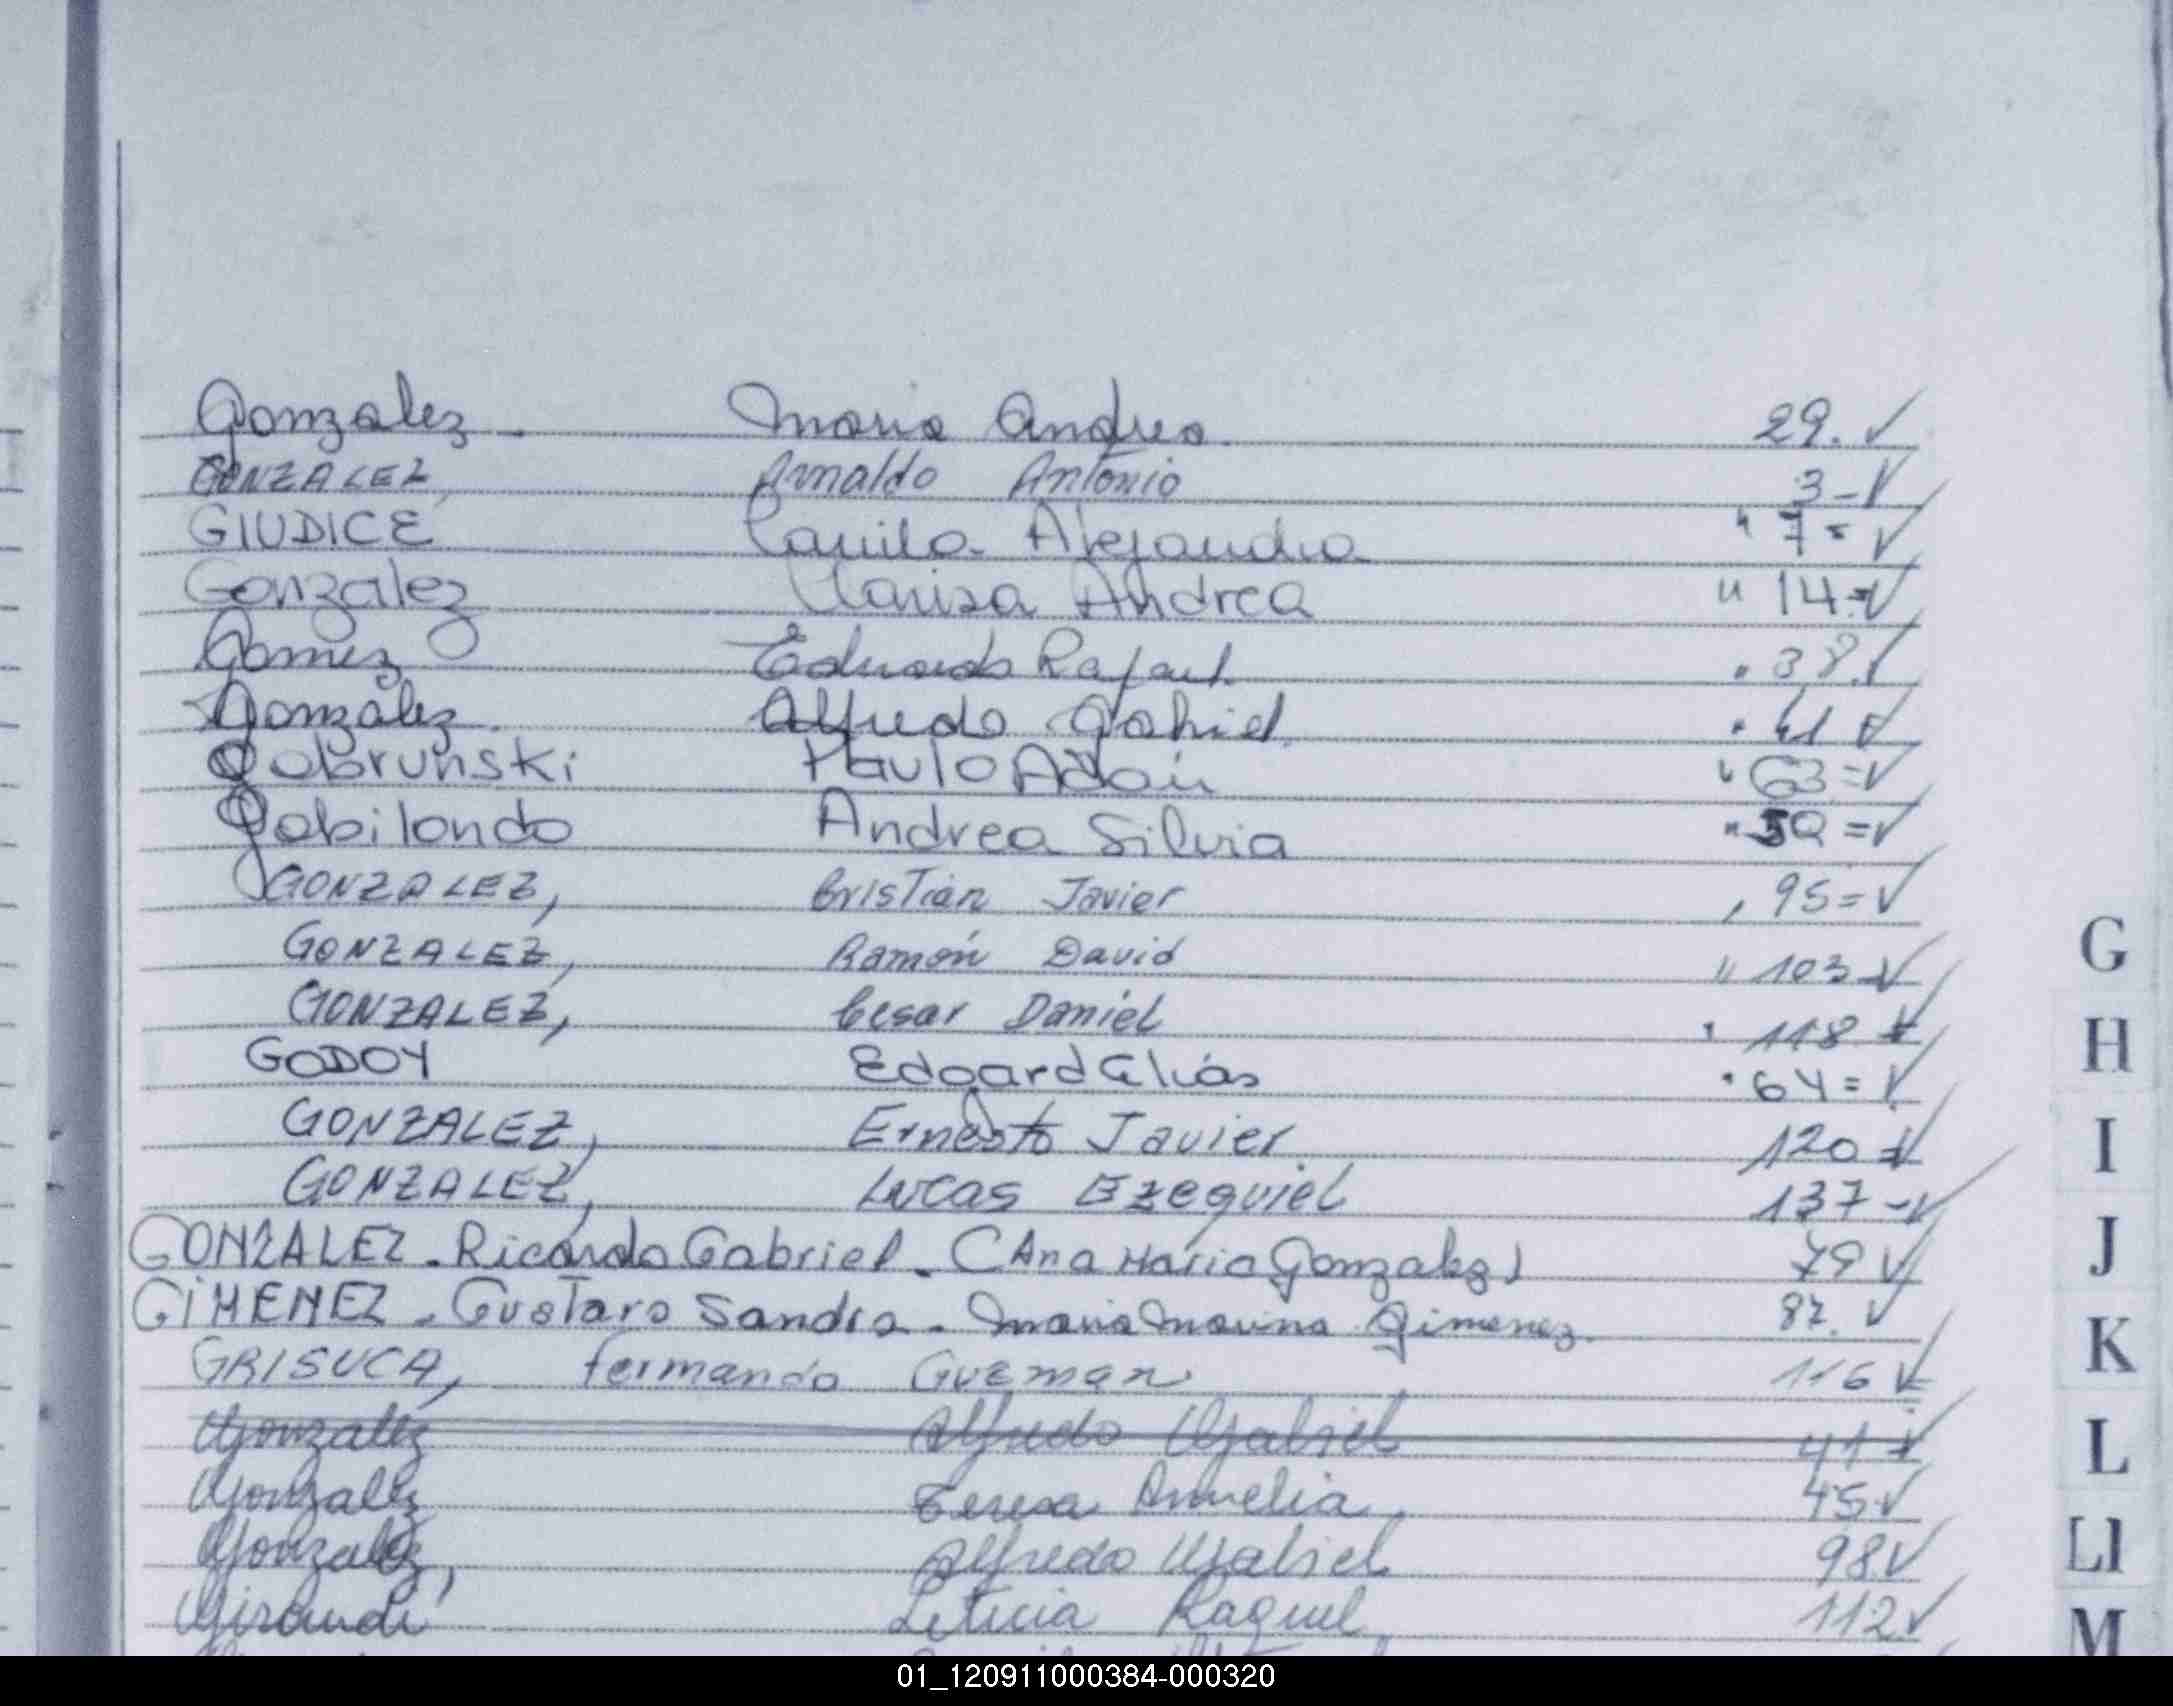 Gonzalez. Maria Andrea. 29. ✓
GONZALEZ, Arnaldo Antonio 3-✓
GIUDICE Camila Alejandra " 7= ✓
Gonzalez Clarisa Andrea " 14=✓
Gomez Eduardo Rafael. " 38.✓
Gonzalez. Alfredo Gabriel. " 41 ✓
Gobrunski Paulo Adan " 63=✓
Gobilondo Andrea Silvia " =✓
GONZALEZ, Cristian Javier , 95=✓
GONZALEZ, Ramón David " 103-✓
GONZALEZ, Cesar Daniel " 118 ✓
GODOY Edgard Elias " 64=✓
GONZALEZ, Ernesto Javier. 120=✓
GONZALEZ, Lucas Ezequiel 137-✓
GONZALEZ. Ricardo Gabriel. (Ana Maria Gonzalez) 79 ✓
GIMENEZ. Gustavo Sandro. Maria Marina Gimenez. 82. ✓
GRISUCA, Fernando Guzman 116 ✓
Gonzalez Alfredo Gabriel 41 ✓
Gonzalez Teresa Amelia 45 ✓
Gonzalez, Alfredo Gabriel 98 ✓
Leticia Raquel 112 ✓
G
H
I
J
K
L
Ll
M
01_120911000384-000320